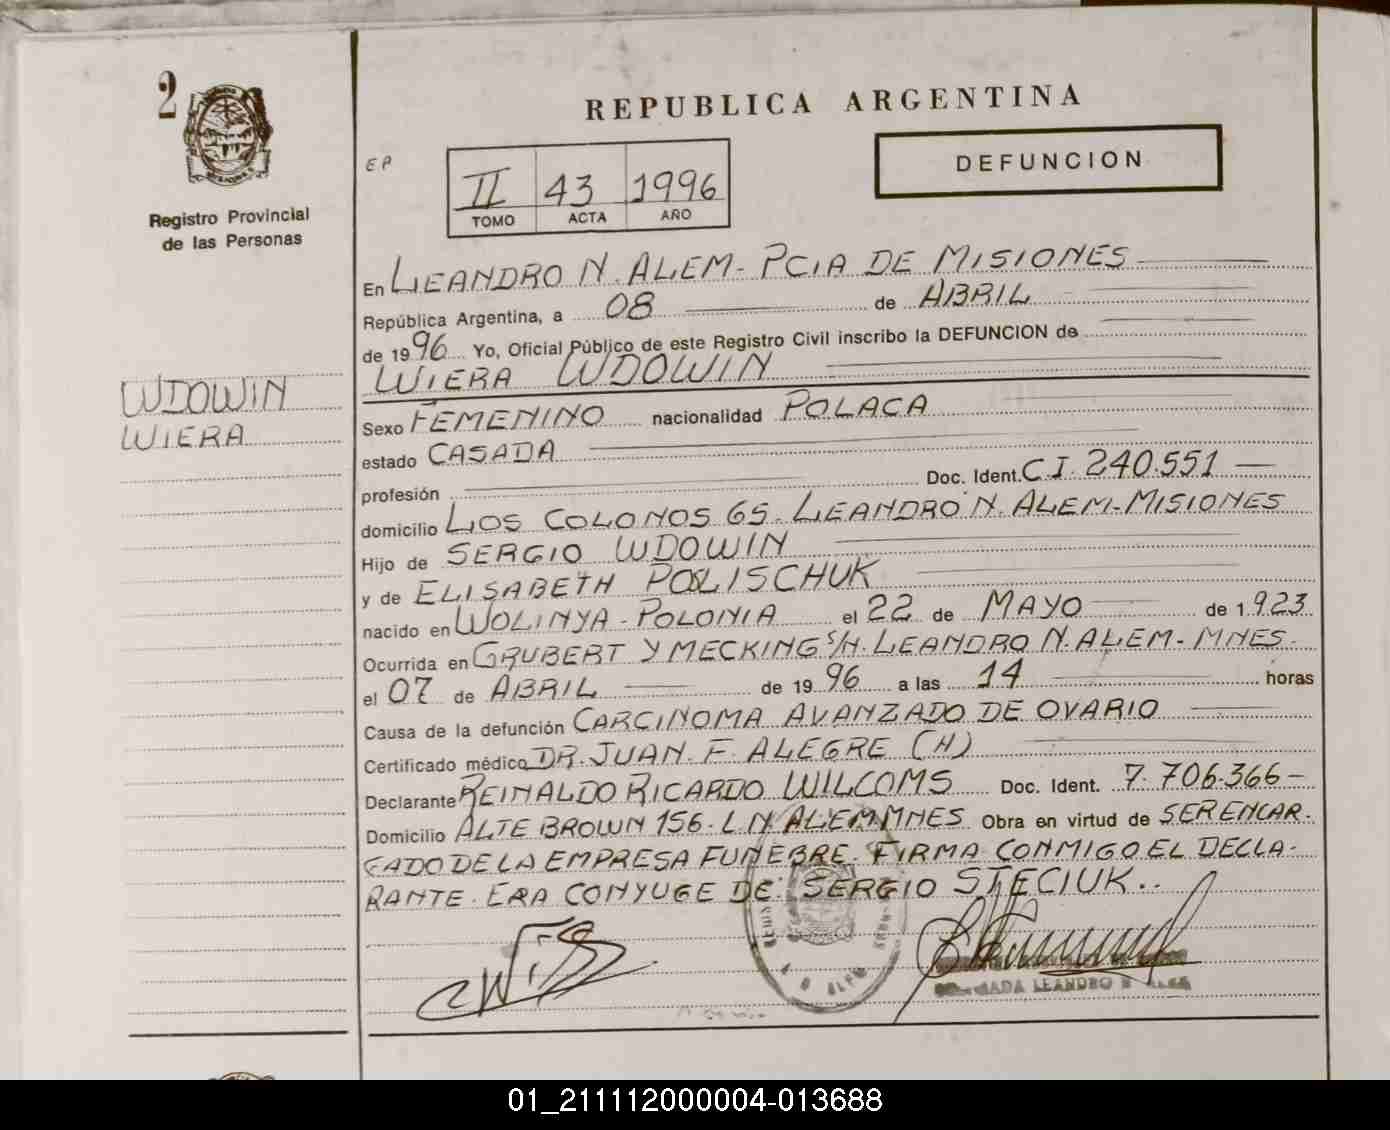 2
Registro Provincial
de las Personas
REPUBLICA ARGENTINA
EP
II 43 1996
TOMO ACTA AÑO
DEFUNCION
WDOWIN
WIERA
En LEANDRO N. ALEM - PCIA DE MISIONES
República Argentina, a 08 de ABRIL
de 1996 Yo, Oficial Público de este Registro Civil inscribo la DEFUNCION de
WIERA WDOWIN
Sexo FEMENINO nacionalidad POLACA
estado CASADA
profesión Doc. Ident. C.I. 240.551 —
domicilio LOS COLONOS 65. LEANDRO N. ALEM-MISIONES
Hijo de SERGIO WDOWIN
y de ELISABETH POLISCHUK
nacido en WOLINYA - POLONIA el 22 de MAYO de 1.923
Ocurrida en GRUBERT Y MECKING S/N. LEANDRO N. ALEM - MNES.
el 07 de ABRIL de 1996 a las 14 horas
Causa de la defunción CARCINOMA AVANZADO DE OVARIO
Certificado médico DR. JUAN. F. ALEGRE (H)
Declarante REINALDO RICARDO WILCOMS Doc. Ident. 7.706.366 —
Domicilio ALTE BROWN 156. L.N. ALEM MNES Obra en virtud de SER ENCAR-
GADO DE LA EMPRESA FUNEBRE. FIRMA CONMIGO EL DECLA-
RANTE. ERA CONYUGE DE: SERGIO STECIUK..
LEANDRO N ALEM
01_211112000004-013688